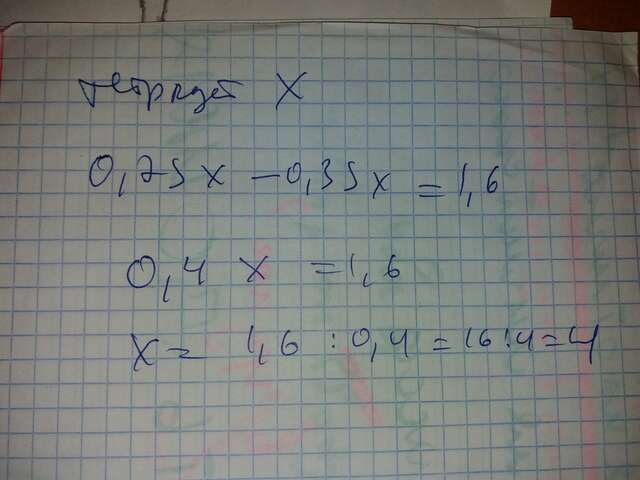 X
0,75x - 0,35x = 1,6
0,4 x = 1,6
x = 1,6 : 0,4 = 16:4=4